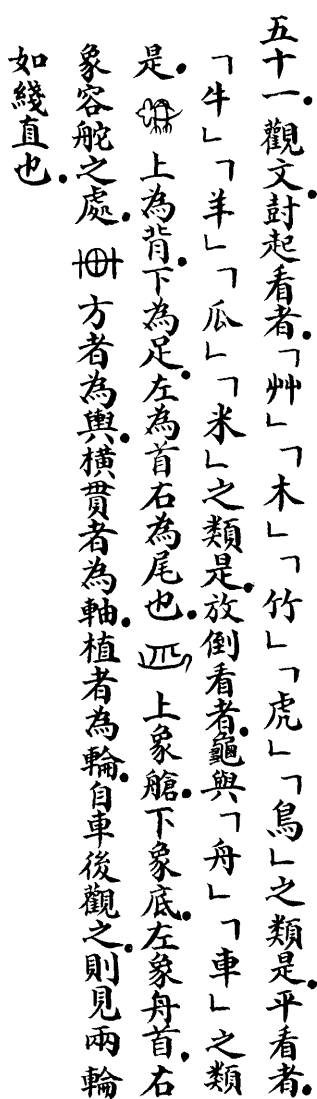 五十一．觀文．封起看者．「艸」「木」「竹」「虎」「鳥」之類是．平看者．
「牛」「羊」「瓜」「米」之類是．放倒看者．龜與「舟」「車」之類
是．上為背．下為足．左為首右為尾也．上象艙．下象底．左象舟首．右
象容舵之處．方者為輿．橫貫者為軸．植者為輪．自車後觀之．則見兩輪
如綫直也．